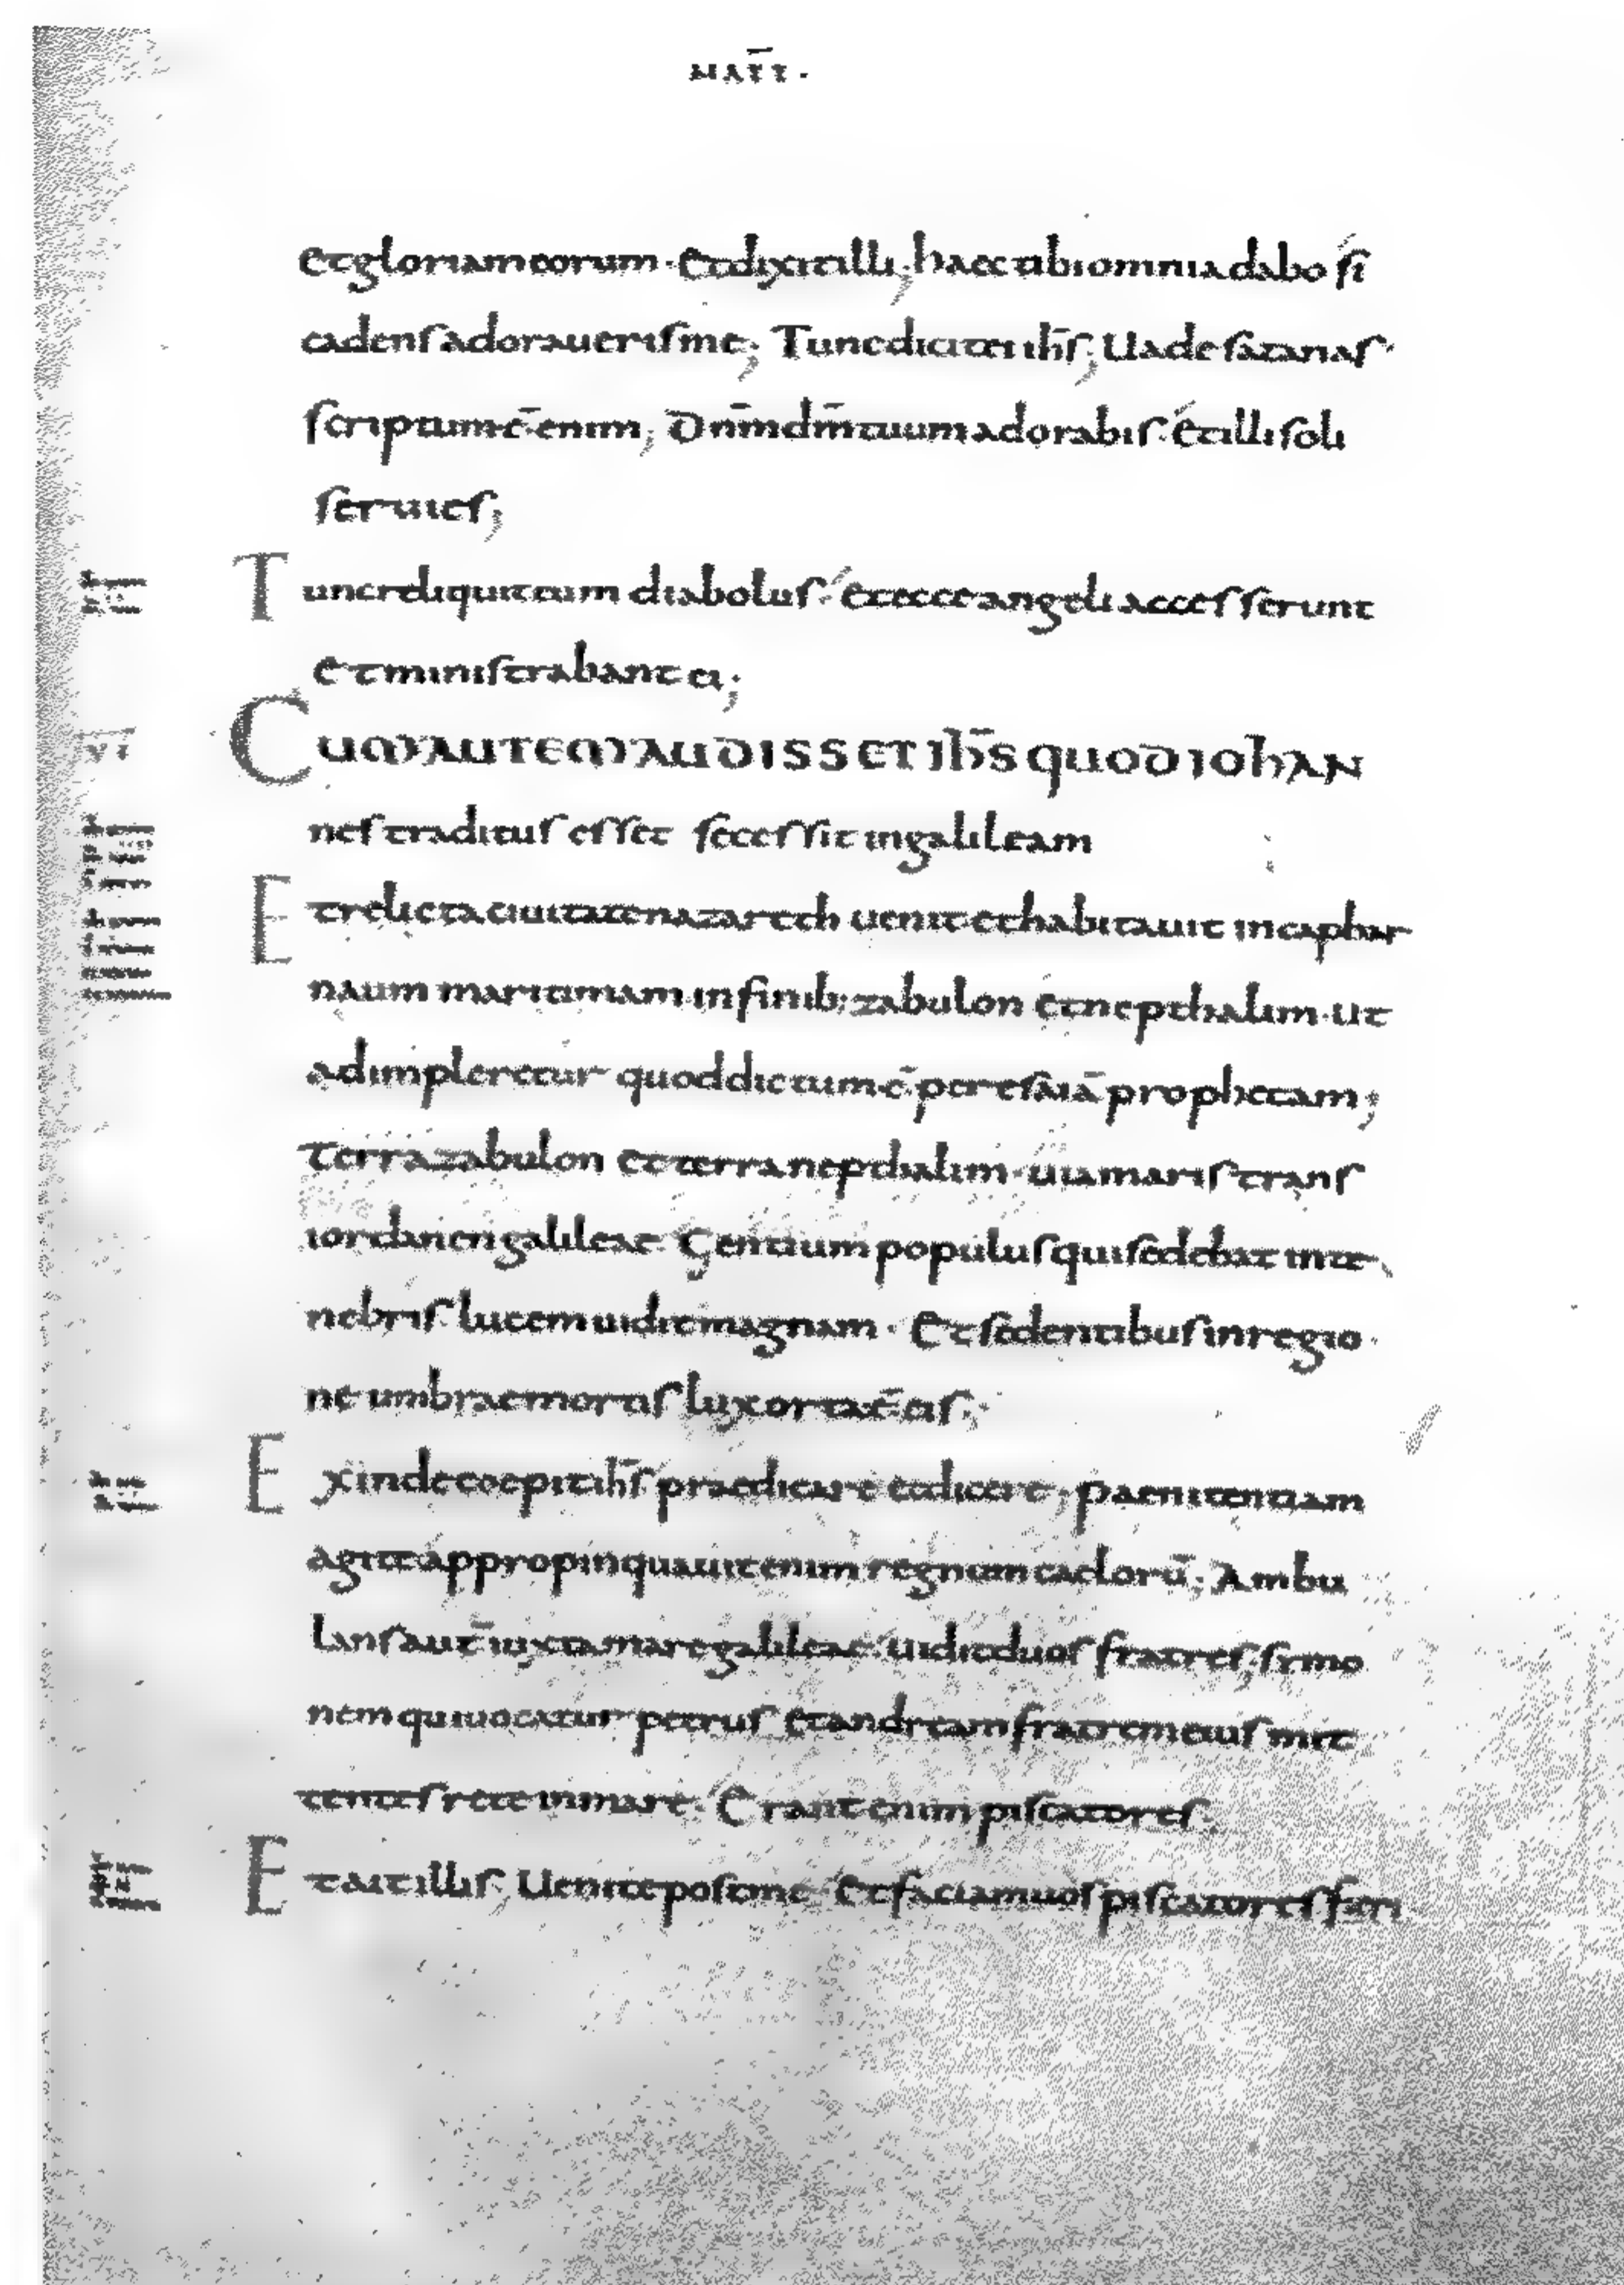 MAT̄T·
et gloriam eorum · Et dixit illi; haec tibi omnia dabo si
cadens adoraueris me; Tunc dicit ei ih̄s; Uade satanas
scriptum ē enim; Dn̄m dm̄ tuum adorabis · Et illi soli
seruies;
Tunc reliquit eum diabolus · Et ecce angeli accesserunt
et ministrabant ei;
VI
CUM AUTEM AUDISSET IH̄S QUOD IOHAN
nes traditus esset secessit in galileam
Et relicta ciuitate nazareth uenit et habitauit in caphar
naum maritimam · in finib; zabulon et nepthalim · Ut
adimpleretur quod dictum ē per esaiā prophetam;
Terra zabulon et terra nepthalim · uia maris trans
iordanen galileae · Gentium populus qui sedebat in te
nebris lucem uidit magnam · Et sedentibus in regio
ne umbrae mortis lux orta ē eis;
Exinde coepit ih̄s praedicare et dicere; Paenitentiam
agite appropinquauit enim regnum caelorū; Ambu
lans aut̄ iuxta mare galileae · uidit duos fratres; simo
nem qui uocatur petrus et andream fratrem eius mit
tentes rete in mare · Erant enim piscatores;
Et ait illis; Uenite post me · Et faciam uos piscatores fieri